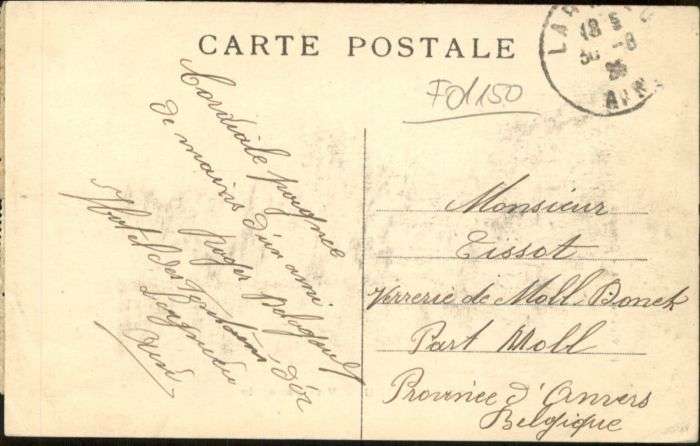 CARTE POSTALE
18 5
30 -8
AISNE
Fd 150
Cordiale poignée
de mains d'un ami
Roger
Hotel des d'or
Monsieur
Tissot
Verrerie de Moll-Donck
Part Moll
Province d'Anvers
Belgique